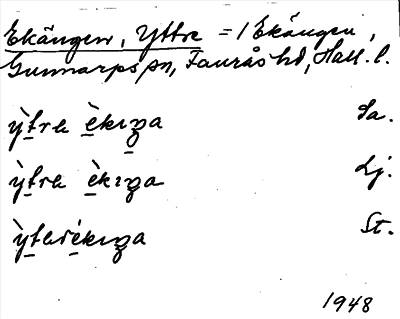 Ekängen, Yttre = / Ekängen,
Gunnarps sn, Faurås hd, Hall. l.
ỳt̲ra è̲kıŋa Sa.
ỳt̲ra è̲kıŋa Lj.
ỳt̲arè̲kıŋa St.
1948